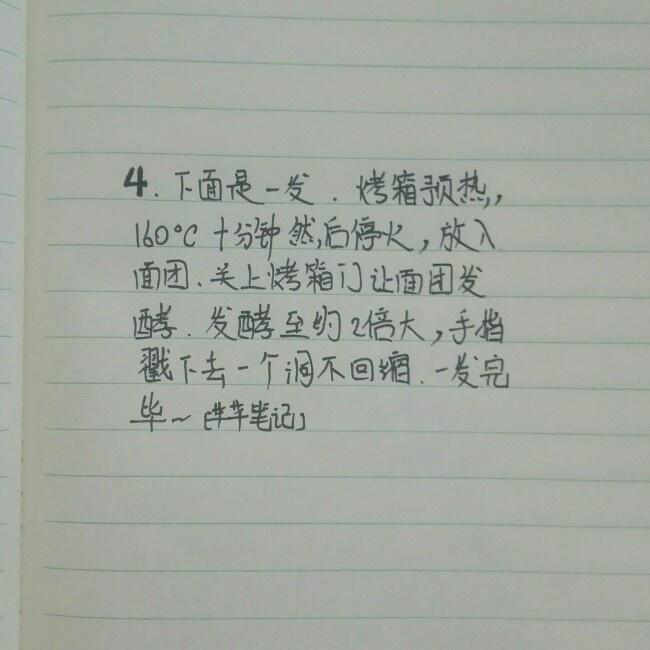 4. 下面是一发. 烤箱预热,
160°C 十分钟然后停火，放入
面团、关上烤箱门让面团发
酵. 发酵至约2倍大，手指
戳下去一个洞不回缩. 一发完
毕~ [芊芊笔记]